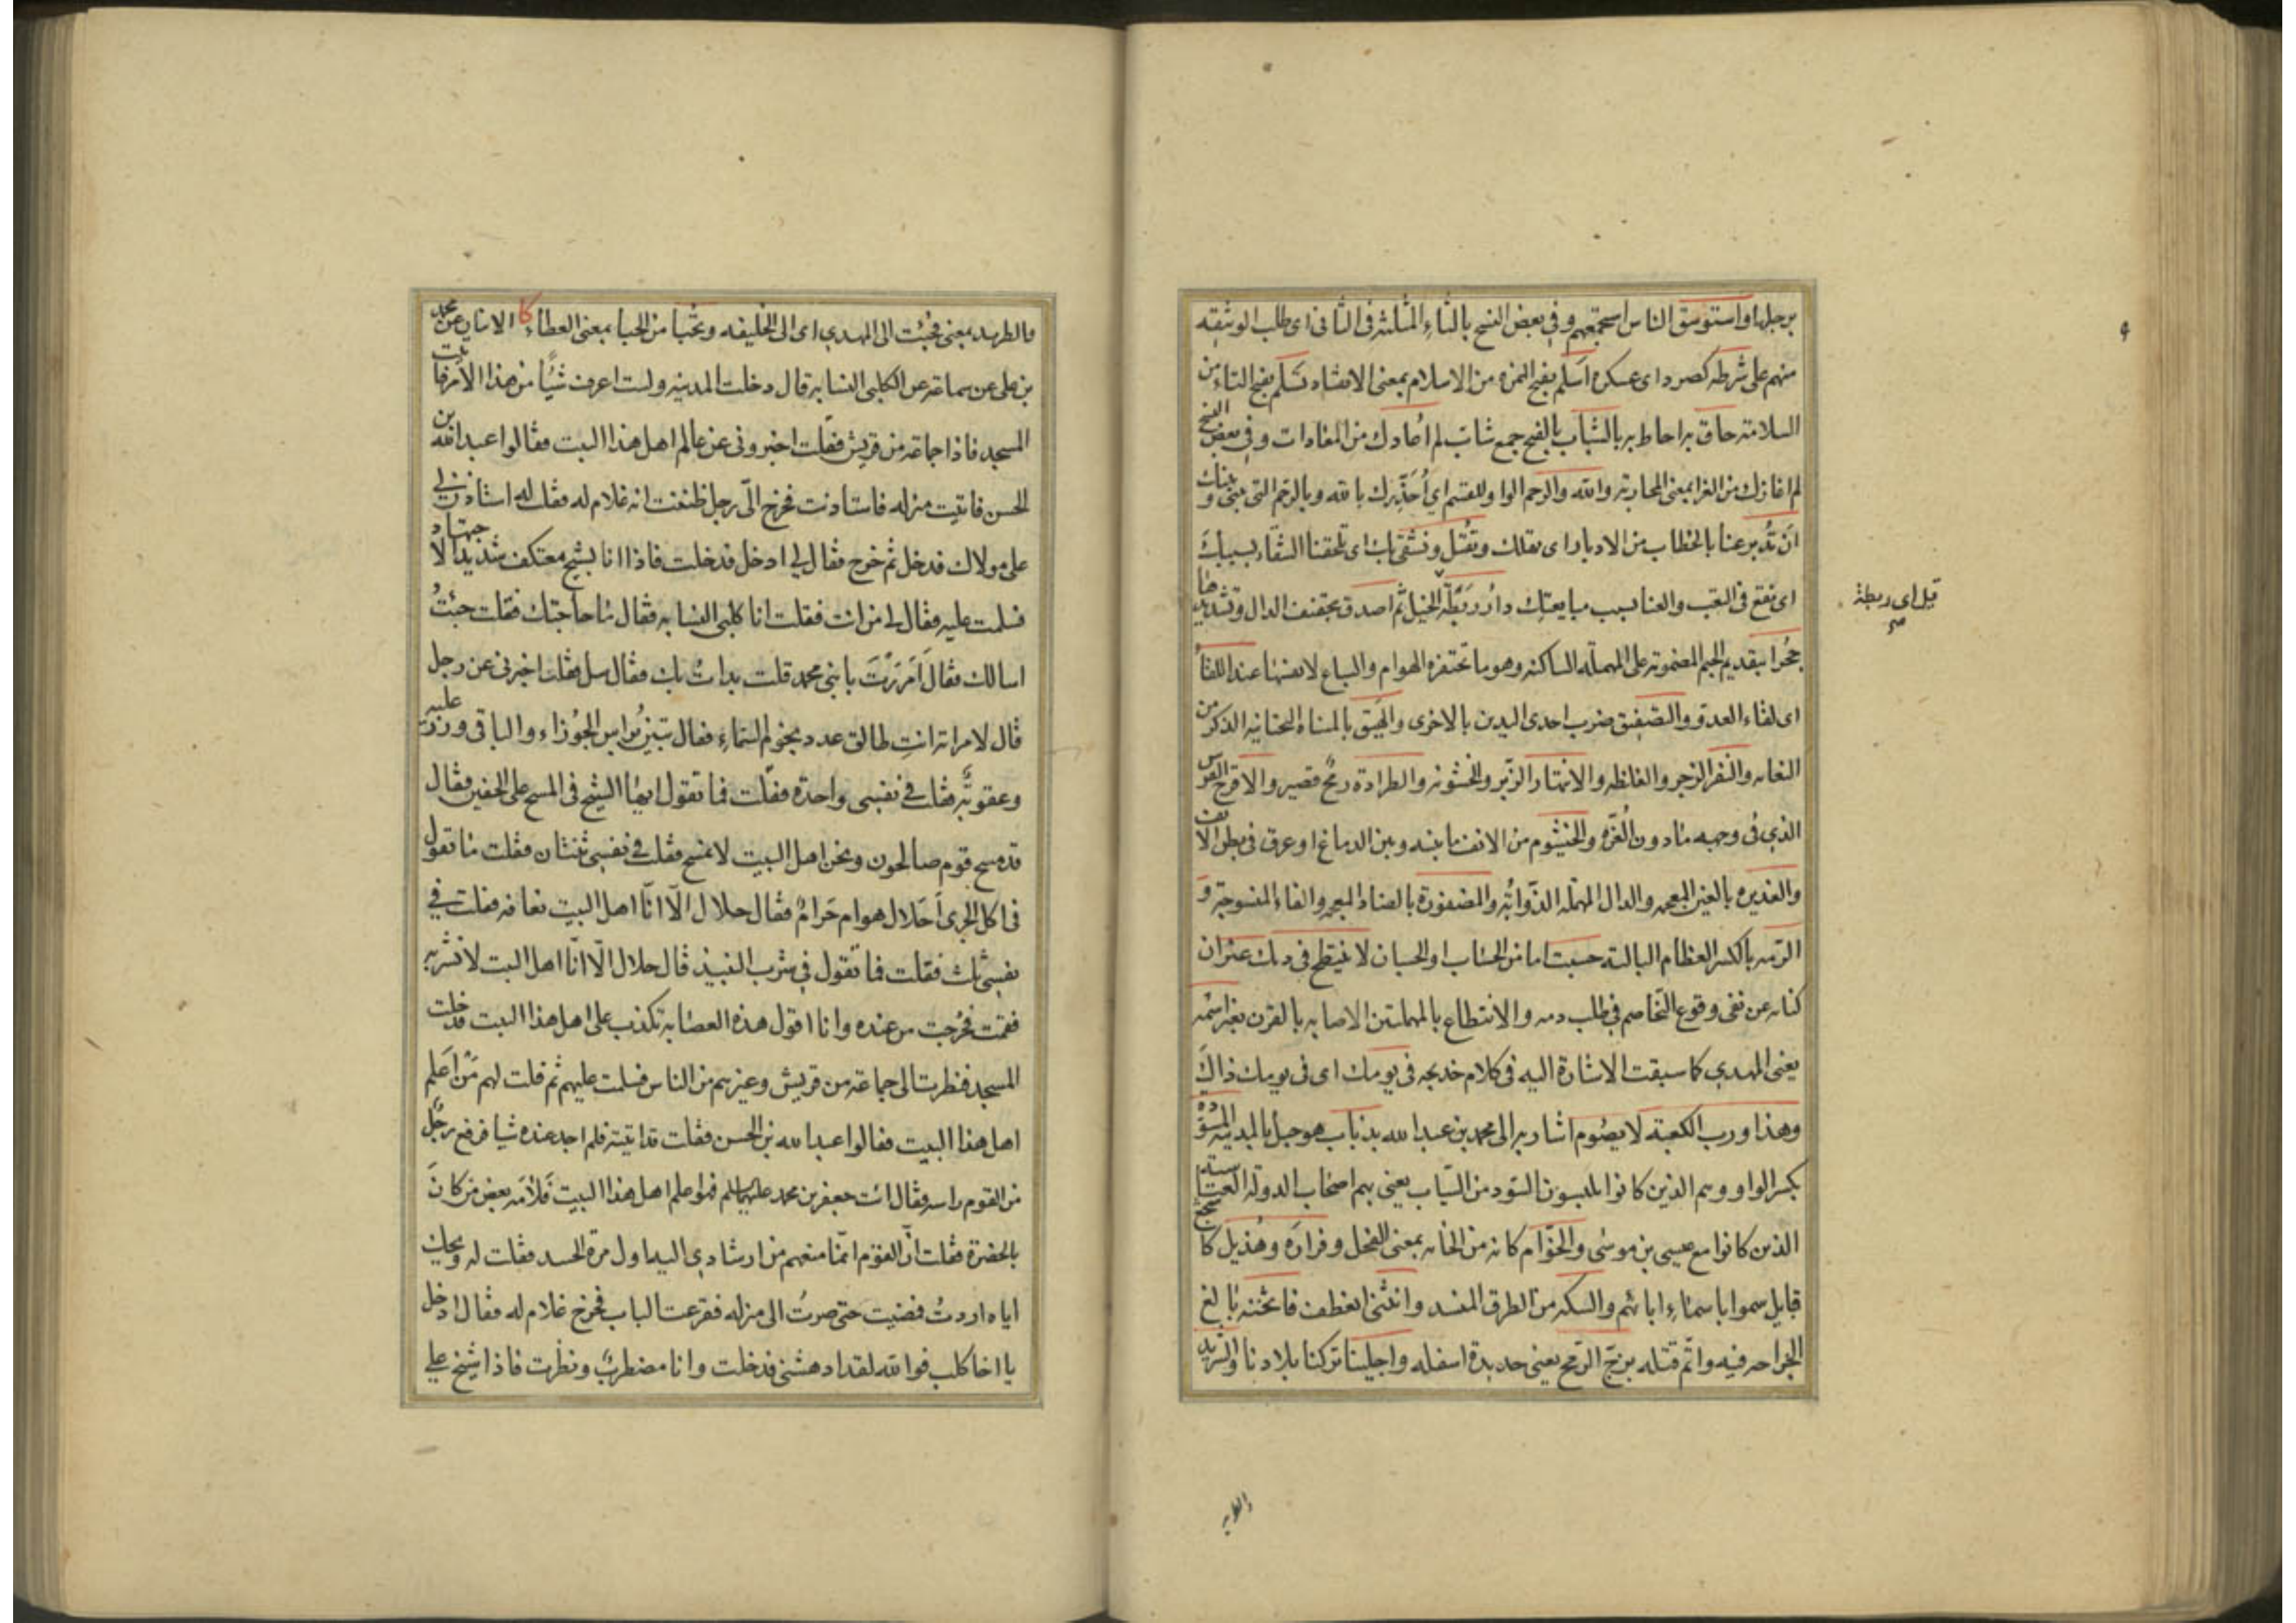 برجلها واستوسق الناس استجمعهم وفي بعض النسخ بالثاء المثلثة في الثاني اى طلب الوثيقه
منهم على شرطه كصرد اى عسكره اسلم بفتح الهمزه من الاسلام بمعنى الانقياد تسلم بفتح التاء من
السلامة حاق به احاط به بالشباب بالفتح جمع شاب لم اعادك من المعادات وفي بعض النسخ
لم اغازك من الغزا بمعنى المحاربه والله والرحم الواو للقسم اي احذرك بالله وبالرحم التى بينى وبينك
ان تدبر عنا بالخطاب من الادبار اى بقتلك وتقتل ونشقى بك اى تلحقنا الشقاء بسببك
اى نقع في التعب والعنا بسبب مبايعتك دار ربطة الخيل ثم اصدق بتخفيف الدال وتشديدها
قيل اى ربطة
جحرا بتقديم الجيم المضمومه على المهمله الساكنه وهو ما تحتفره الهوام والسباع لانفسها عند اللقاء
اى لقاء العدو والتصفيق ضرب احدى اليدين بالاخرى والهيق بالمثناة التحتانيه الذكر من
النعامه والنفر الزجر والغلظه والانتهار الزبر والخشونه والطرادة رمح قصير والاقرح الفرس
الذي في وجهه ما دون الغره والخيشوم من الانف ما بينه وبين الدماغ او عرق في بطن الانف
والغديره بالغين المعجمه والدال المهمله الذوابه والمضفورة بالضاد المعجمه والفاء المنسوجة و
الرمه بالكسر العظام الباليه حسبت اما من الحساب او الحسبان لا ينتطح في دمك عنزان
كنايه عن نفى وقوع التخاصم في طلب دمه والانتطاع بالمهملتين الاصابه بالقرن بغير اسمه
يعنى المهدي كما سبقت الاشارة اليه في كلام خديجه في يومك اى في يومك ذاك
وهذا ورب الكعبة لا يصوم اشار به الى محمد بن عبد الله بذباب هو جبل بالمدينه المسودة
بكسر الواو وهم الذين كانوا يلبسون السود من الثياب يعنى بهم اصحاب الدولة العباسيه
الذين كانوا مع عيسى بن موسى والخوام كانه من الخامه بمعنى الفجل وفزارة وهذيل كاشجع
قبايل سموا باسماء ابائهم والسكه من الطرق المنسد وانثنى انعطف فاثخنه بالغ
الجراحه فيه واتم قتله بزج الرمح يعنى حديدة اسفله واجلينا تركنا بلادنا والتريد
الطريد
والطريد بمعنى فجئت الى المهدي اى الى الخليفه وتحبا من الحبا بمعنى العطاء كا الاثنان عن محمد
بن على عن سماعة عن الكلبى النسابه قال دخلت المدينه ولست اعرف شيئا من هذا الامر فاتيت
المسجد فاذا جماعة من قريش فقلت اخبرونى عن عالم اهل هذا البيت فقالوا عبد الله بن
الحسن فاتيت منزله فاستاذنت فخرج الىّ رجل ظننت انه غلام له فقلت له استاذن لي
على مولاك فدخل ثم خرج فقال لي ادخل فدخلت فاذا انا بشيخ معتكف شديد الاجتهاد
فسلمت عليه فقال لي من انت فقلت انا كلبى النسابه فقال ما حاجتك فقلت جئت
اسالك فقال امررت بابنى محمد قلت بدات بك فقال سل فقلت اخبرنى عن رجل
قال لامراته انت طالق عدد نجوم السماء فقال تبين براس الجوزاء والباقى وزر عليه
وعقوبة فقلت في نفسى واحدة فقلت فما تقول ايها الشيخ في المسح على الخفين فقال
قد مسح قوم صالحون ونحن اهل البيت لا نمسح فقلت في نفسى ثنتان فقلت ما تقول
في اكل الجرى أحلال هو ام حرام فقال حلال الّا انّا اهل البيت نعافه فقلت في
نفسى ثلث فقلت فما تقول في شرب النبيذ قال حلال الّا انّا اهل البيت لا نشربه
فقمت فخرجت من عنده وانا اقول هذه العصابه تكذب على اهل هذا البيت فدخلت
المسجد فنظرت الى جماعة من قريش وغيرهم من الناس فسلمت عليهم ثم قلت لهم من اعلم
اهل هذا البيت فقالوا عبد الله بن الحسن فقلت قد اتيته فلم اجد عنده شيا فرفع رجل
من القوم راسه فقال ائت جعفر بن محمد عليهما السلم فهو اعلم اهل هذا البيت فلامه بعض من كان
بالحضرة فقلت ان القوم انما منعهم من ارشادي اليه اول مرة الحسد فقلت له ويحك
اياه اردت فمضيت حتى صرت الى منزله فقرعت الباب فخرج غلام له فقال ادخل
يا اخا كلب فوالله لقد ادهشنى فدخلت وانا مضطرب ونظرت فاذا شيخ على